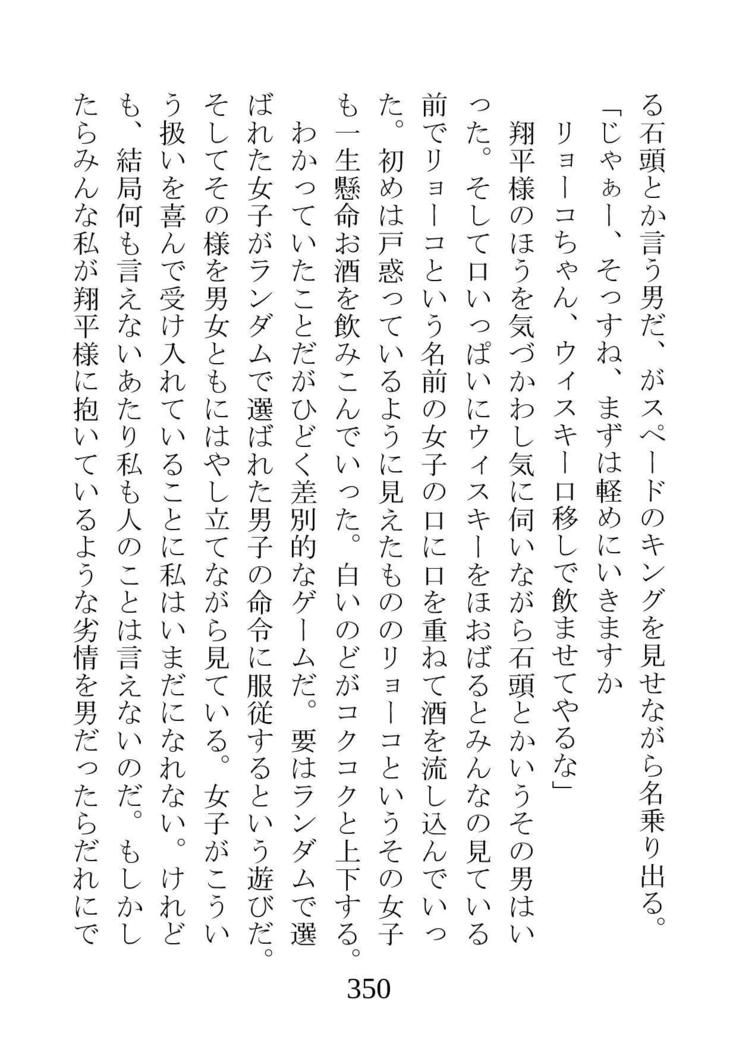 る石頭とか言う男だ、がスペードのキングを見せながら名乗り出る。
「じゃぁー、そっすね、まずは軽めにいきますか
リョーコちゃん、ウィスキー口移しで飲ませてやるな」
翔平様のほうを気づかわし気に伺いながら石頭とかいうその男はい
った。そして口いっぱいにウィスキーをほおばるとみんなの見ている
前でリョーコという名前の女子の口に口を重ねて酒を流し込んでいっ
た。初めは戸惑っているように見えたもののリョーコというその女子
も一生懸命お酒を飲みこんでいった。白いのどがコクコクと上下する。
わかっていたことだがひどく差別的なゲームだ。要はランダムで選
ばれた女子がランダムで選ばれた男子の命令に服従するという遊びだ。
そしてその様を男女ともにはやし立てながら見ている。女子がこうい
う扱いを喜んで受け入れていることに私はいまだになれない。けれど
も、結局何も言えないあたり私も人のことは言えないのだ。もしかし
たらみんな私が翔平様に抱いているような劣情を男だったらだれにで
350